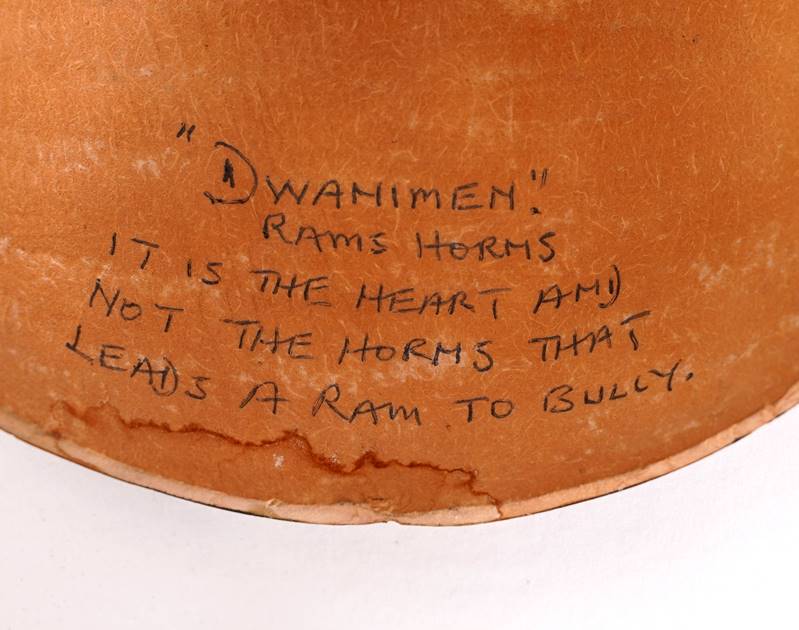 "DWANIMEN."
RAMS HORNS
IT IS THE HEART AND
NOT THE HORNS THAT
LEADS A RAM TO BULLY.